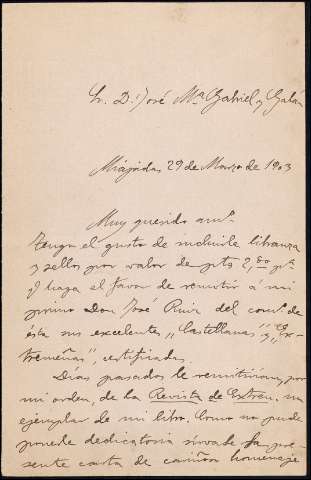 Sr. D. José Mª Gabriel y Galan
Miajadas 29 de Marzo de 1903
Muy querido am.º
Tengo el gusto de incluirle libranza
y sellos por valor de pts 2,80 pª
q. haga el favor de remitir á mi
primo Don José Ruiz del com.º de
ésta sus excelentes "Castellanas" y "Ex-
tremeñas", certificadas.
Días pasados le remitirían, por
mi orden, de la Revista de Extrem. un
ejemplar de mi libro. Como no pude
ponerle dedicatoria sírvale la pre-
sente carta de cariñoso homenaje